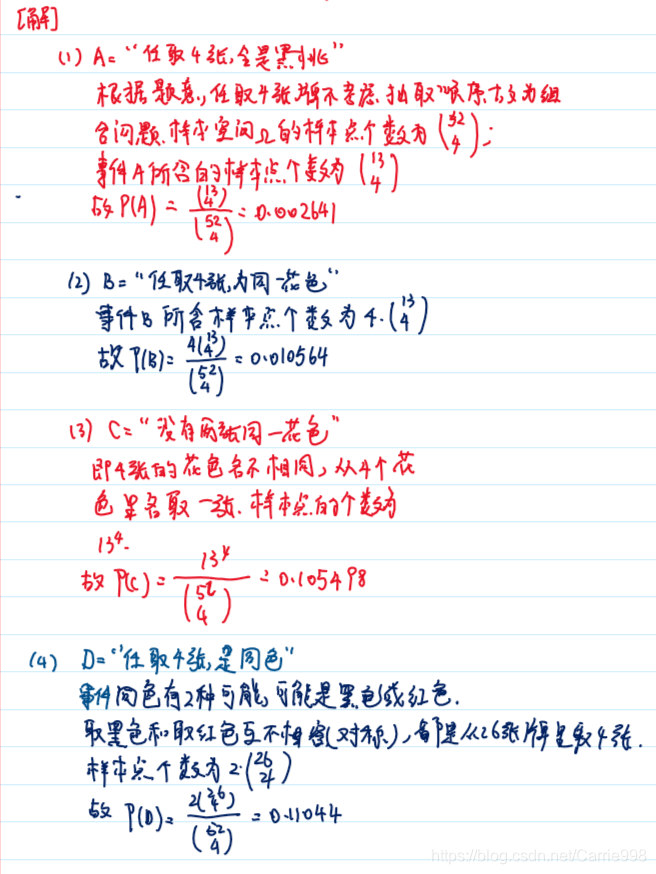 [解]
(1) A="任取4张,全是黑桃"
根据题意,任取4张牌不考虑抽取顺序故为组
合问题.样本空间Ω的样本点个数为(52 4);
事件A所含的样本点个数为(13 4)
故P(A)=(13 4)/(52 4)=0.002641
(2) B="任取4张,为同一花色"
事件B所含样本点个数为4·(13 4)
故P(B)=4(13 4)/(52 4)=0.010564
(3) C="没有两张同一花色"
即4张的花色各不相同,从4个花
色里各取一张.样本点的个数为
13⁴.
故P(C)=13⁴/(52 4)=0.105498
(4) D="任取4张,是同色"
事件同色有2种可能,可能是黑色或红色.
取黑色和取红色互不相容(对称),都是从26张牌里取4张.
样本点个数为2·(26 4)
故P(D)=2(26 4)/(52 4)=0.11044
https://blog.csdn.net/Carrie998